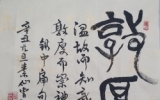 敦厚
温故而知新
敦厚以崇禮
中庸句
辛丑元旦